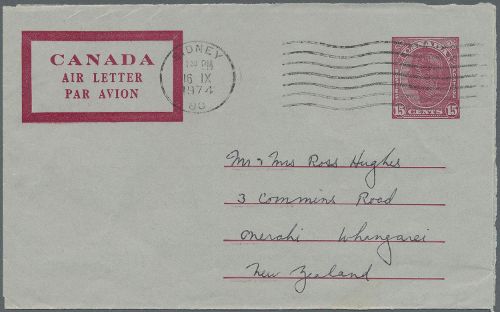 CANADA
AIR LETTER
PAR AVION
SIDNEY
PM
16 IX
1974
CANADA
15 CENTS 15
Mr & Mrs Ross Hughes
3 Commins Road
Onerahi Whangarei
New Zealand